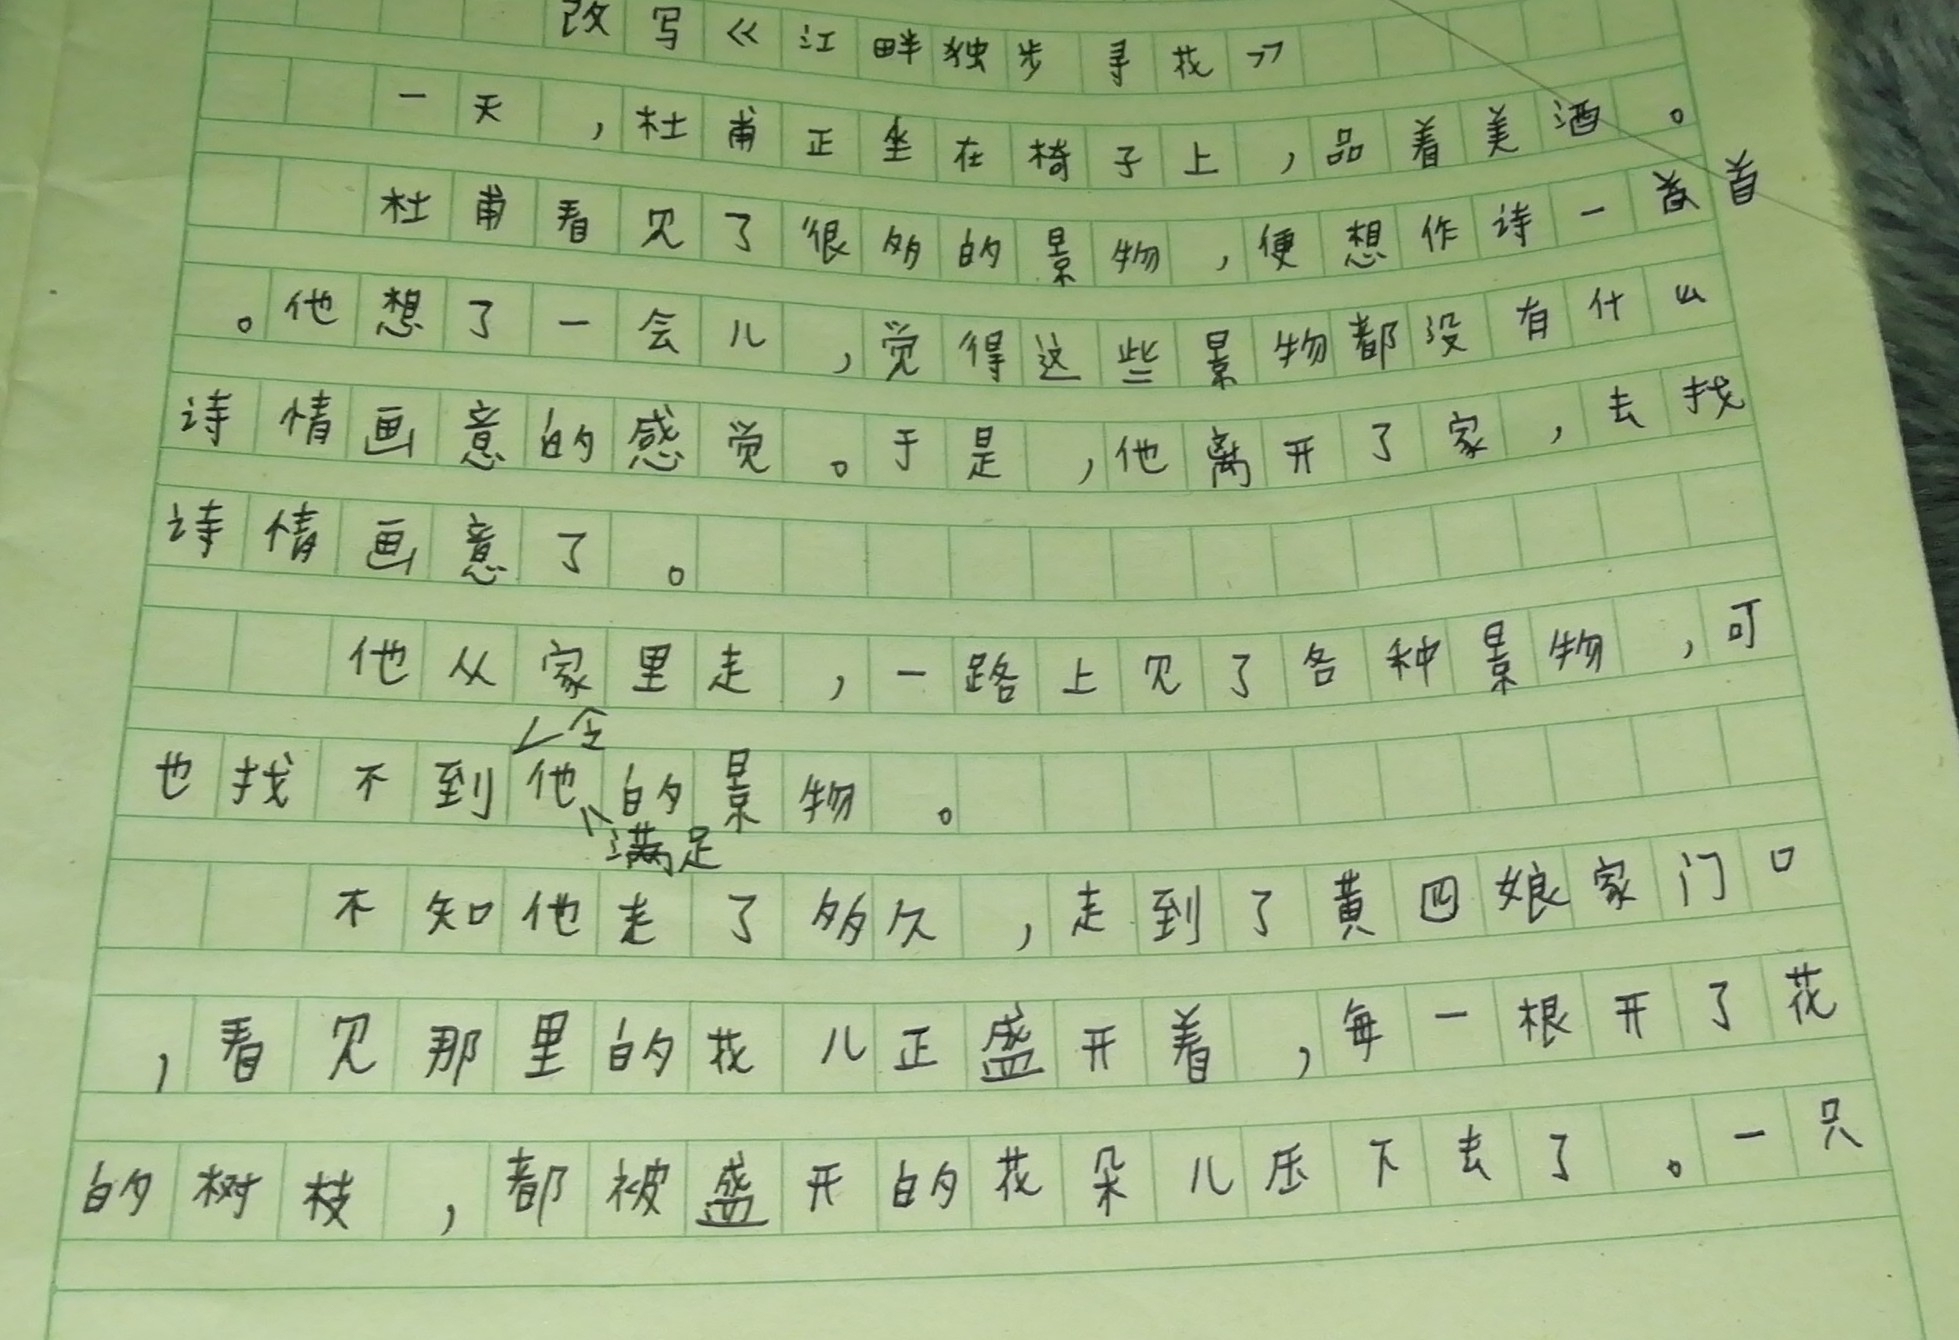 改写《江畔独步寻花》
一天，杜甫正坐在椅子上，品着美酒。
杜甫看见了很多的景物，便想作诗一首
。他想了一会儿，觉得这些景物都没有什么
诗情画意的感觉。于是，他离开了家，去找
诗情画意了。
他从家里走，一路上见了各种景物，可
也找不到令他满足的景物。
不知他走了多久，走到了黄四娘家门口
，看见那里的花儿正盛开着，每一根开了花
的树枝，都被盛开的花朵儿压下去了。一只